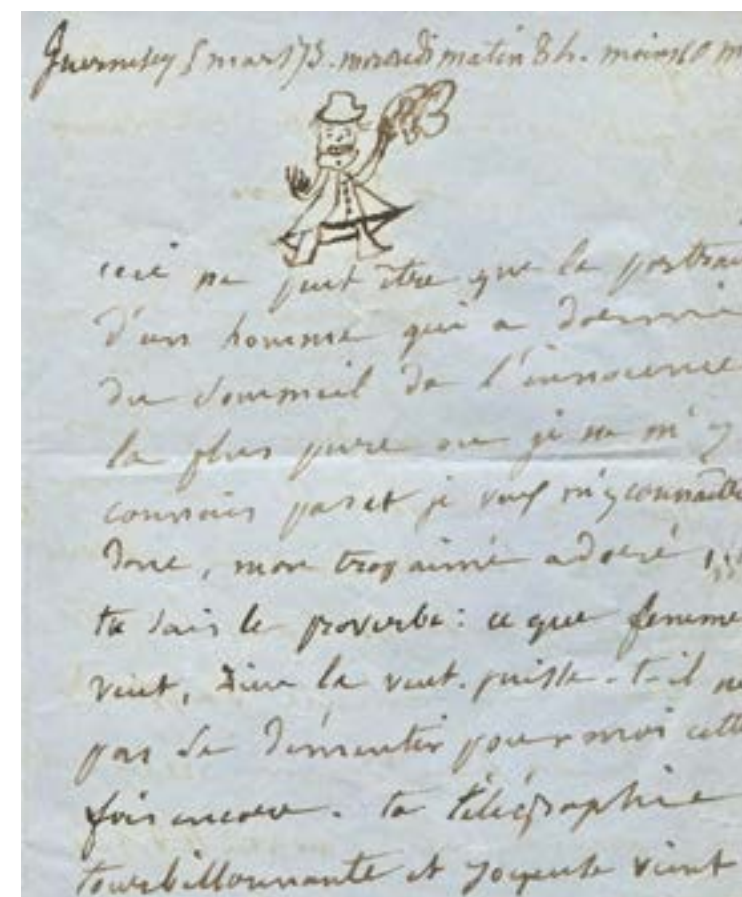 Guernesey 5 mars 73. mercredi matin 8 h. moins 10 m
ceci ne peut être que le portrai
d'un homme qui a dormi
du sommeil de l'innocence
la plus pure ou je ne m'y
connais pas et je veux m'y connaître
donc, mon trop aimé adoré,
tu sais le proverbe: ce que femme
veut, Dieu la veut. puisse-t-il ne
pas se démentir pour moi cette
fois encore. ta télégraphie
tourbillonnante et joyeuse vient